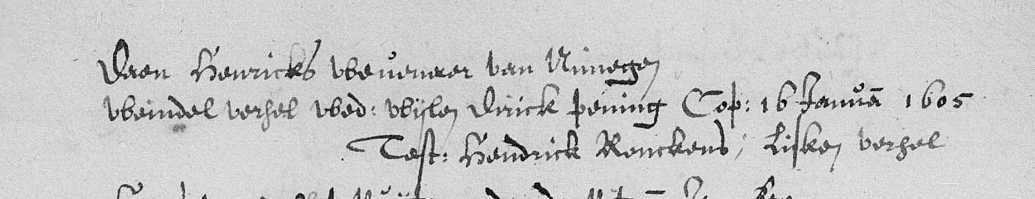 Daen Henricks Weuenaer van Nimegen
Weindel versel Wed: Wijlen Dirick pening Cop: 16 Januari 1605
Test: Hendrick Renckens, Lisken versel